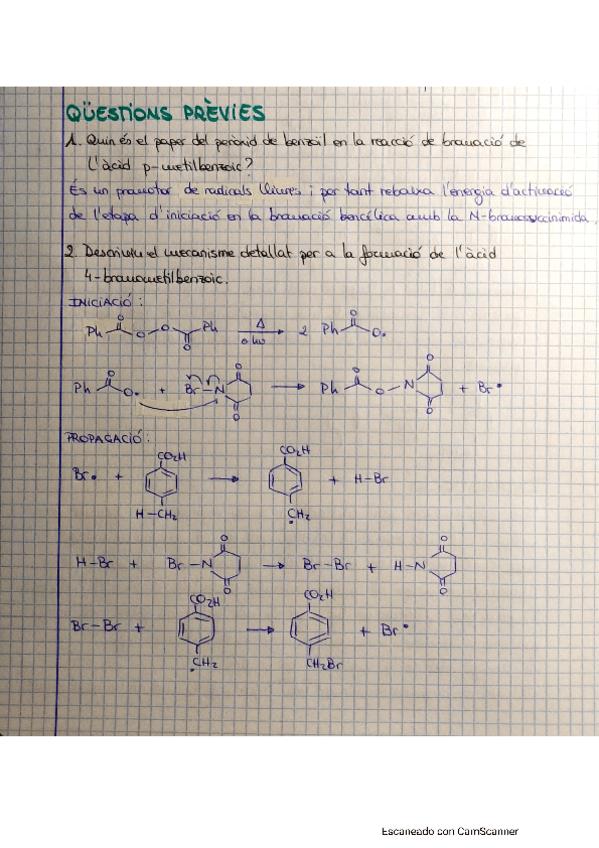 QÜESTIONS PRÈVIES
1. Quin és el paper del peròxid de benzoïl en la reacció de bromació de
l'àcid p-metilbenzoic?
És un promotor de radicals lliures i per tant rebaixa l'energia d'activació
de l'etapa d'iniciació en la bromació bencílica amb la N-bromosuccinimida.
2. Descriviu el mecanisme detallat per a la formació de l'àcid
4-bromometilbenzoic.
INICIACIÓ:
Ph O O O O Ph Δ o hν 2 Ph O O.
Ph O O. + Br-N O O → Ph O O-N O O + Br•
PROPAGACIÓ:
Br. + CO2H H-CH2 → CO2H .CH2 + H-Br
H-Br + Br-N O O → Br-Br + H-N O O
Br-Br + CO2H .CH2 → CO2H CH2Br + Br•
Escaneado con CamScanner